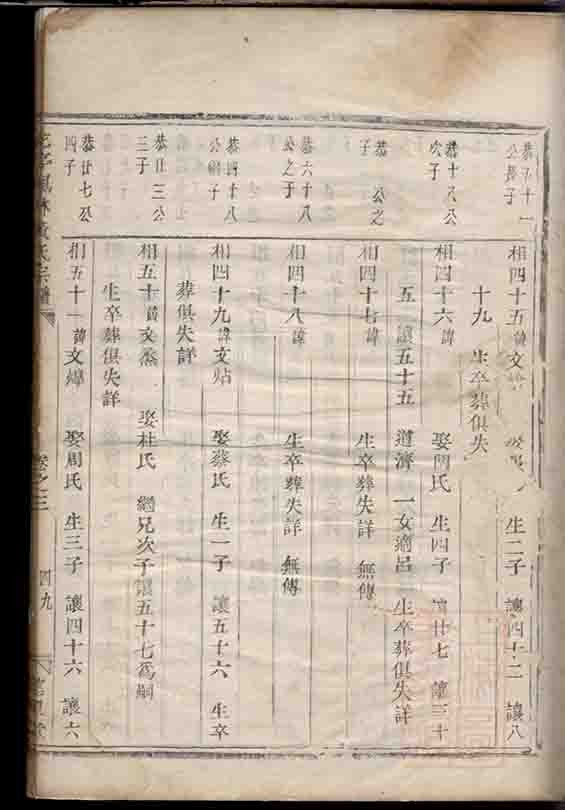 恭子十一
公長子
相四十五諱文 生二子 讓四十二 讓八
十九 生卒葬俱失
恭十八公
次子
相四十六諱 娶閔氏 生四子 讓廿七 讓三十
五 讓五十五 道濟 一女適呂 生卒葬俱失詳
恭 公之
子
相四十七諱 生卒葬失詳 無傳
恭六十八
公之子
相四十八諱 生卒葬失詳 無傳
恭四十八
公嗣子
相四十九諱文貼 娶蔡氏 生一子 讓五十六 生卒
葬俱失詳
恭廿三公
三子
相五十諱文烝 娶杜氏 繼兄次子讓五十七爲嗣
生卒葬俱失詳
恭廿七公
四子
相五十一諱文煒 娶周氏 生三子 讓四十六 讓六
氏宗譜 卷之三 四九